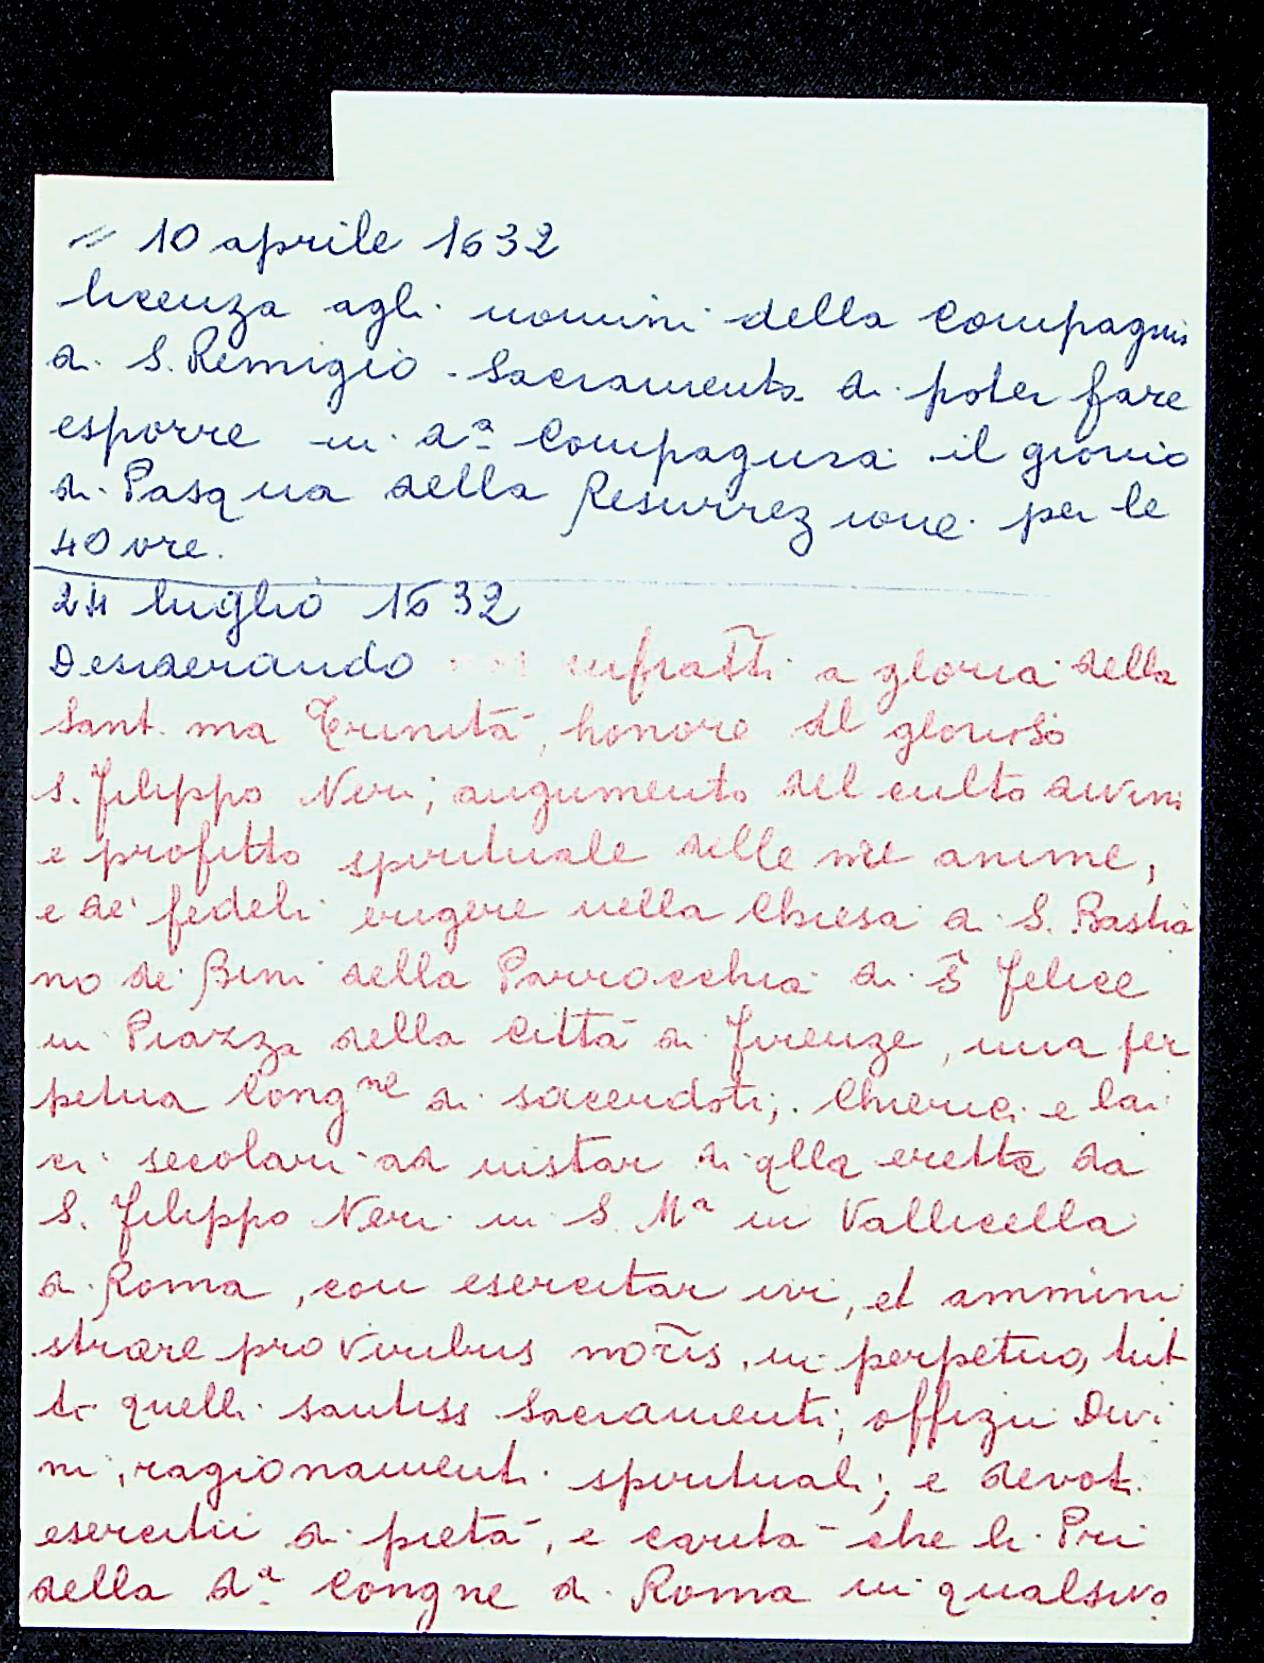 10 aprile 1632
licenza agli uomini della Compagnia
di S. Remigio - Sacramento di poter fare
esporre in d.ª Compagnia il giorno
di Pasqua della Resurrezione per le
40 ore.
24 luglio 1632
Desiderando infratti a gloria della
Sant.ma Trinità, honore del glorioso
S. Filippo Neri; augumento del culto divino
e profitto spirituale delle nre anime,
e de' fedeli erigere nella Chiesa di S. Bastia
no de' Bini della Parrocchia di S. Felice
in Piazza della Città di Firenze, una per
petua Congne di sacerdoti, Chierici e lai
ci secolari ad instar di qlla eretta da
S. Filippo Neri in S. Mª in Vallicella
di Roma, con esercitar ivi, et ammini
strare pro viribus noris, in perpetuo, tut
ti quelli santiss Sacramenti, offizii Divi
ni, ragionamenti spirituali; e devoti
esercitii di pietà, e carità che li Pri
della d.ª Congne di Roma in qualsivo